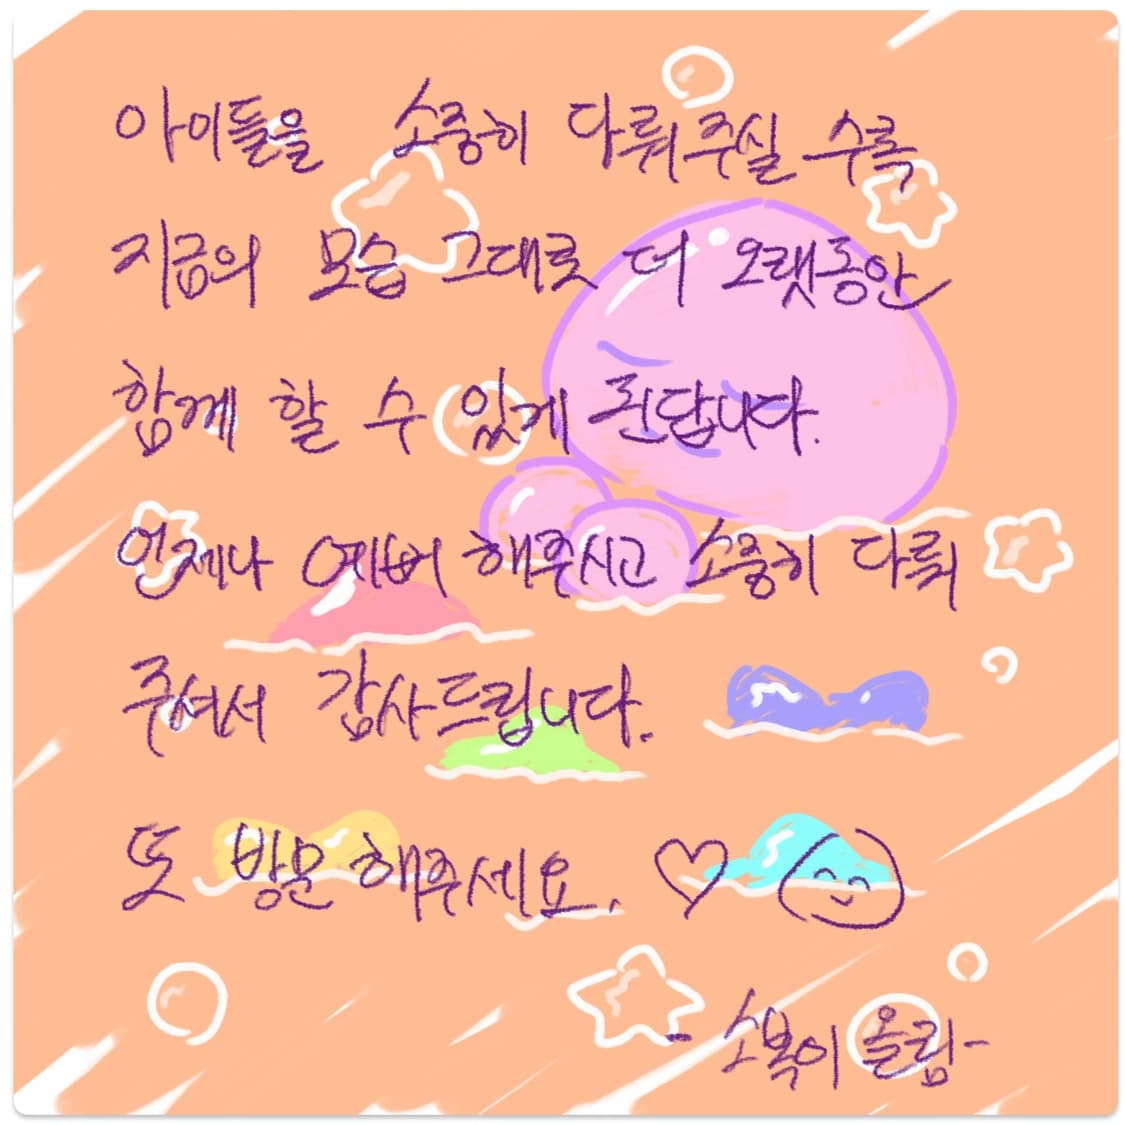 아이들을 소중히 다뤄주실 수록
지금의 모습 그대로 더 오랫동안
함께 할 수 있게 된답니다.
언제나 예뻐 해주시고 소중히 다뤄
주셔서 감사드립니다.
또 방문 해주세요.
- 소복이 올림-